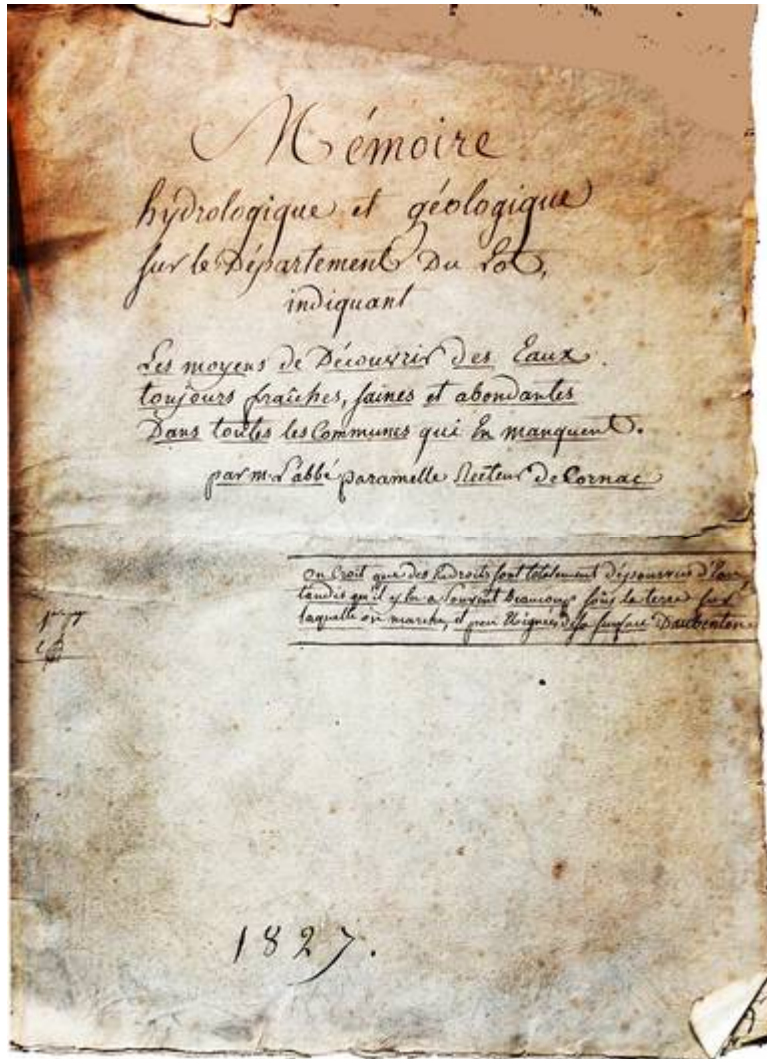 Mémoire
hydrologique et géologique
sur le Département Du Lot,
indiquant
Les moyens de Découvrir des Eaux
toujours fraîches, saines et abondantes
Dans toutes les Communes qui En manquent.
par mr L'abbé paramelle Recteur De Cornac
on Croit que des Endroits sont totalement dépourvus d'Eau,
tandis qu'il y En a souvent Beaucoup sous la terre sur
laquelle on marche, et peu Eloignée de sa surface Daubenton
1827.